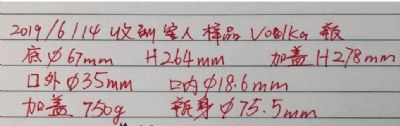 2019/6/14 收到客人样品 Vodka 瓶
底 φ67mm H264mm 加盖 H278mm
口外 φ35mm 口内 φ18.6mm
加盖 750g 瓶身 φ75.5mm